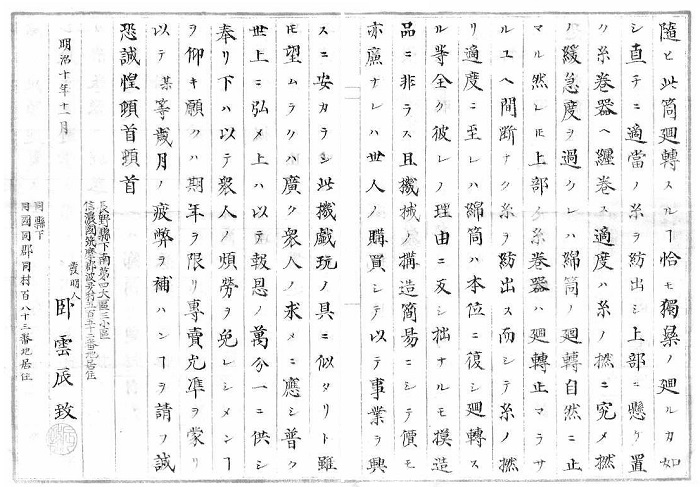 隨ヒ此筒廻轉スルヿ恰モ獨樂ノ廻ルカ如
シ直チニ適當ノ糸ヲ紡出シ上部ニ懸ケ置
ク糸巻器ヘ纒巻ス適度ハ糸ノ撚ニ究メ撚
ノ緩急度ヲ過クレハ綿筒ノ廻轉自然ニ止
マル然レㇳモ上部ノ糸巻器ハ廻轉止マラサ
ルユヘ間断ナク糸ヲ紡出ス而シテ糸ノ撚
リ適度ニ至レハ綿筒ハ本位ニ復シ廻轉ス
ル等全ク彼レノ理由ニ反シ拙ナルモ摸造
品ニ非ラス且機械ノ搆造簡昜ニシテ價モ
亦廉ナレハ世人ノ購買シテ以テ事業ヲ興
スニ安カラシ此機戯玩ノ具ニ似タリト雖
モ望ムラクハ廣ク衆人ノ求メニ應シ普ク
世上ニ弘メ上ハ以テ報恩ノ萬分一ニ供シ
奉リ下ハ以テ衆人ノ煩勞ヲ免レシメンヿ
ヲ仰キ願クハ期年ヲ限リ專賣允准ヲ蒙リ
以テ某等歳月ノ疲弊ヲ補ハンヿヲ請フ誠
恐誠惶頓首頓首
明治十年十一月
長野縣下南第四大區三小區
信濃國筑摩郡波多村五百五十三番地居住
發明人
臥雲辰致
同縣下
同國同郡同村百八十三番地居住